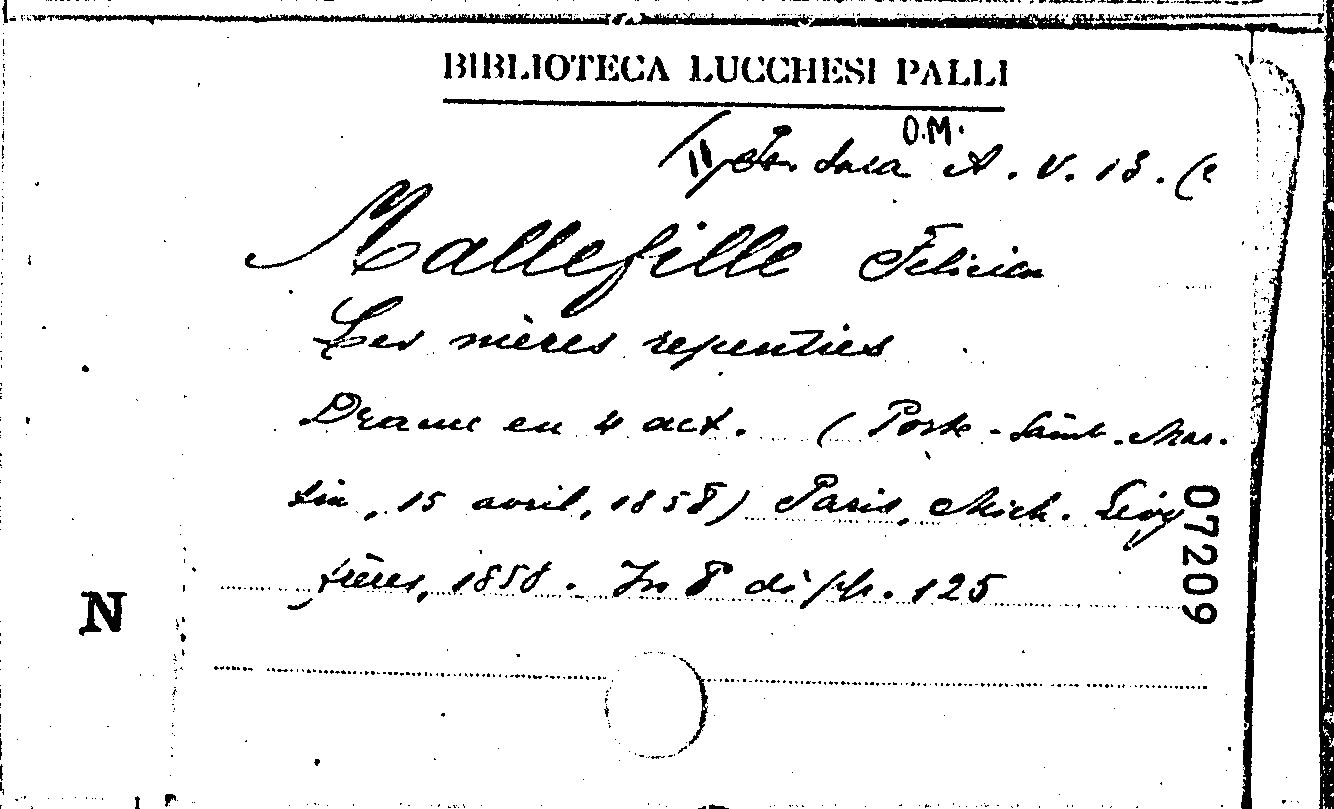 BIBLIOTECA LUCCHESI PALLI
O.M.
A. V. 13. (
Mallefille Félicien
Les mères repenties
Drame en 4 act. (Porte-Saint-Mar-
tin, 15 avril, 1858) Paris, Mich. Lévy
frères, 1858. In 8 di pp. 125
07209
N